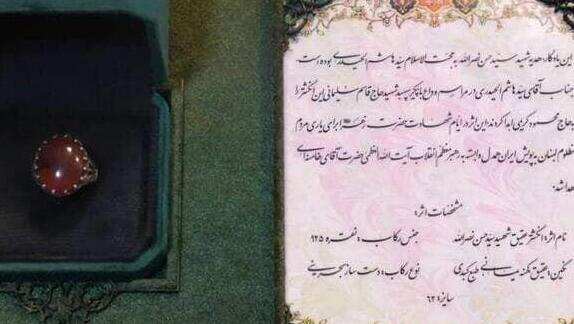 این یادگار، هدیه شهید سید حسن نصرالله به حجت الاسلام سید هاشم الحیدری بوده است
جناب آقای سید هاشم الحیدری در مراسم وداع با پیکر سپهبد شهید حاج قاسم سلیمانی این انگشتر را
به حاج محمود کریمی اهدا کردند، این اثر در ایام شهادت حضرت برای یاری مردم
مظلوم لبنان به پویش ایران همدل وابسته به رهبر معظم انقلاب آیت الله العظمی حضرت آقای خامنه‌ای
اهدا شد.
مشخصات اثر:
نام اثر: انگشتر عقیق شهید سید حسن نصرالله
جنس رکاب: نقره ۹۲۵
نگین: عقیق یمنی طبع کبدی
نوع رکاب: دست ساز
سایز: ۶۲